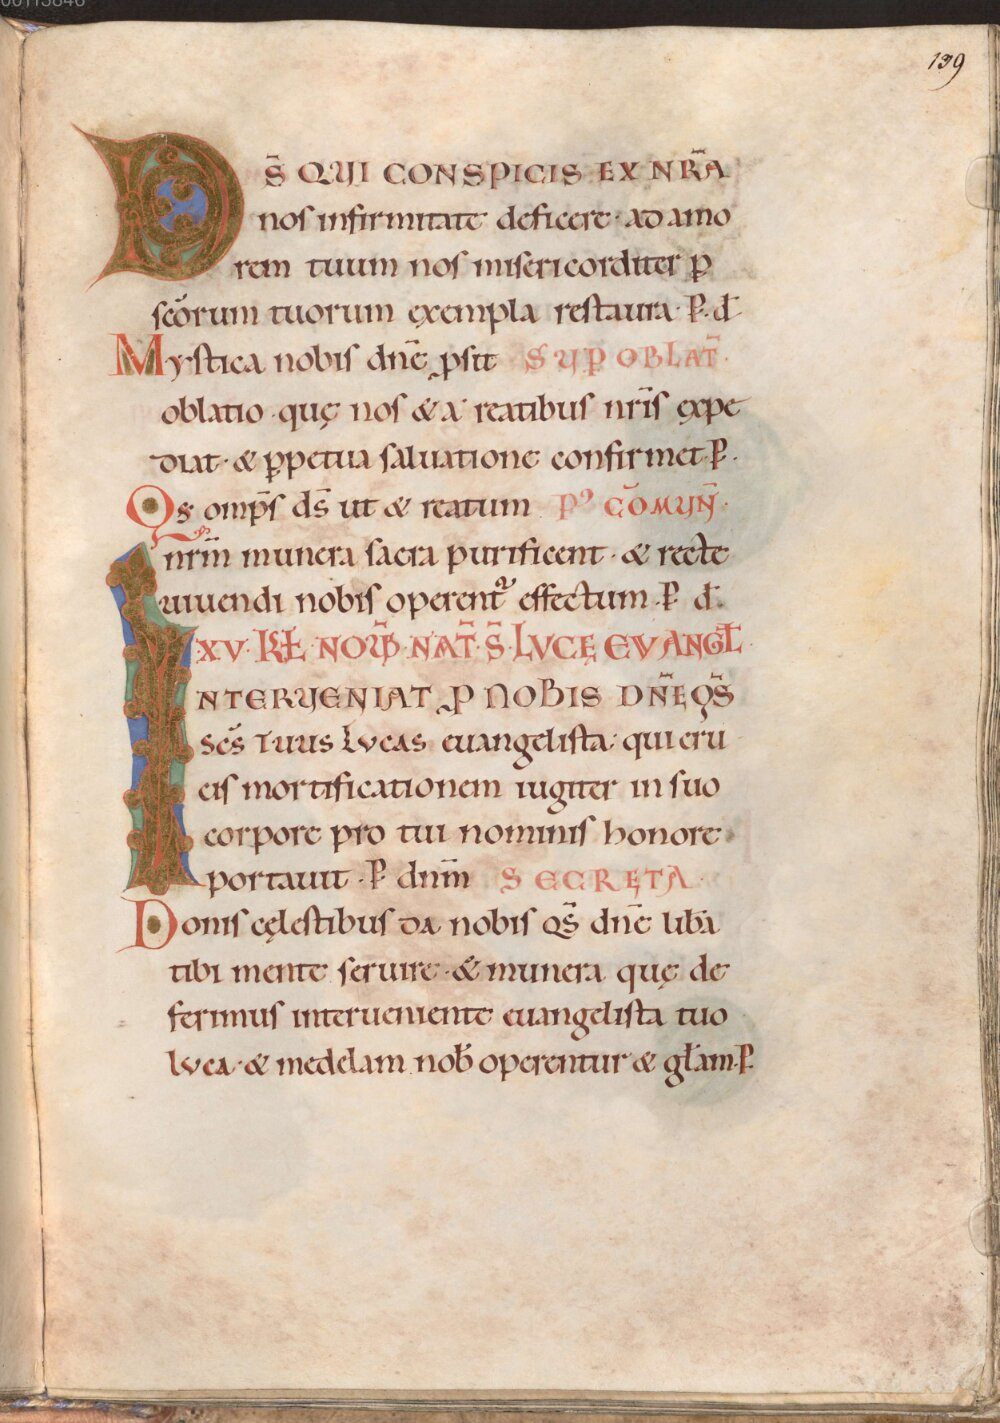 139
DS̄ QUI CONSPICIS EX NR̄A
nos infirmitate deficere· ad amo
rem tuum nos misericorditer ꝑ
sc̄orum tuorum exempla restaura· P· d̄
Mystica nobis dn̄e ꝓsit SUꝐ OBLAT̄·
oblatio· quę nos & a reatibus nr̄is expe
diat· & ꝑpetua saluatione confirmet· P·
Qs omp̄s ds̄ ut & reatum P꯰ CŌMUN̄·
nr̄m munera sacra purificent· & recte
uiuendi nobis operent᷑ effectum· P· d̄·
XV· KL̄· NOUB̄· NAT̄· S̄· LVCĘ EVANGL̄·
INTERUENIAT ꝓ NOBIS DN̄E QS̄
SC̄S Tuus Lvcas euangelista· qui cru
cis mortificationem iugiter in suo
corpore pro tui nominis honore·
portauit· P· dn̄m SECRETA·
Donis cęlestibus da nobis QS̄ dn̄e libā
tibi mente seruire· & munera quę de
ferimus interueniente euangelista tuo
Lvca· & medelam nob̄ operentur & gl̄am· P·